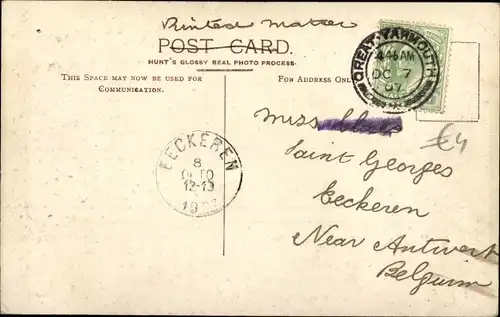 Printed Matter
POST CARD.
HUNT'S GLOSSY REAL PHOTO PROCESS.
THIS SPACE MAY NOW BE USED FOR
COMMUNICATION.
FOR ADDRESS ONL
GREAT YARMOUTH
AM
OC 7
07
Miss
Saint Georges
Eeckeren
Near Antwerp
Belgium
€4
EECKEREN
8
OCTO
12-13